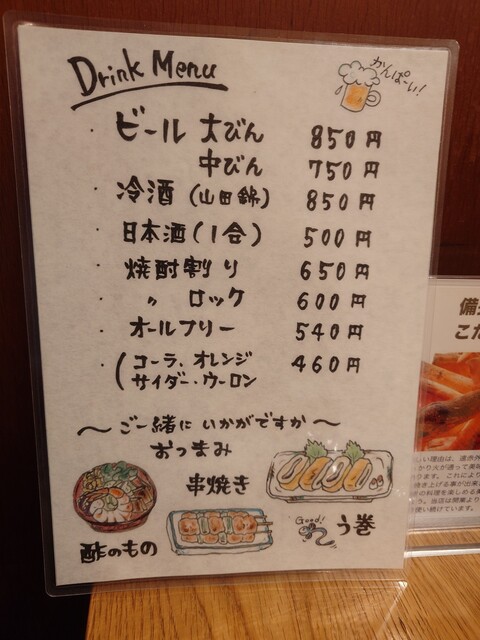 Drink Menu
かんぱーい!
・ビール 大びん 850円
中びん 750円
・冷酒(山田錦) 850円
・日本酒(1合) 500円
・焼酎割り 650円
・〃 ロック 600円
・オールフリー 540円
・(コーラ、オレンジ 460円
サイダー・ウーロン
〜ご一緒にいかがですか〜
おつまみ
串焼き
Good!
う巻
酢のもの
備
こだ